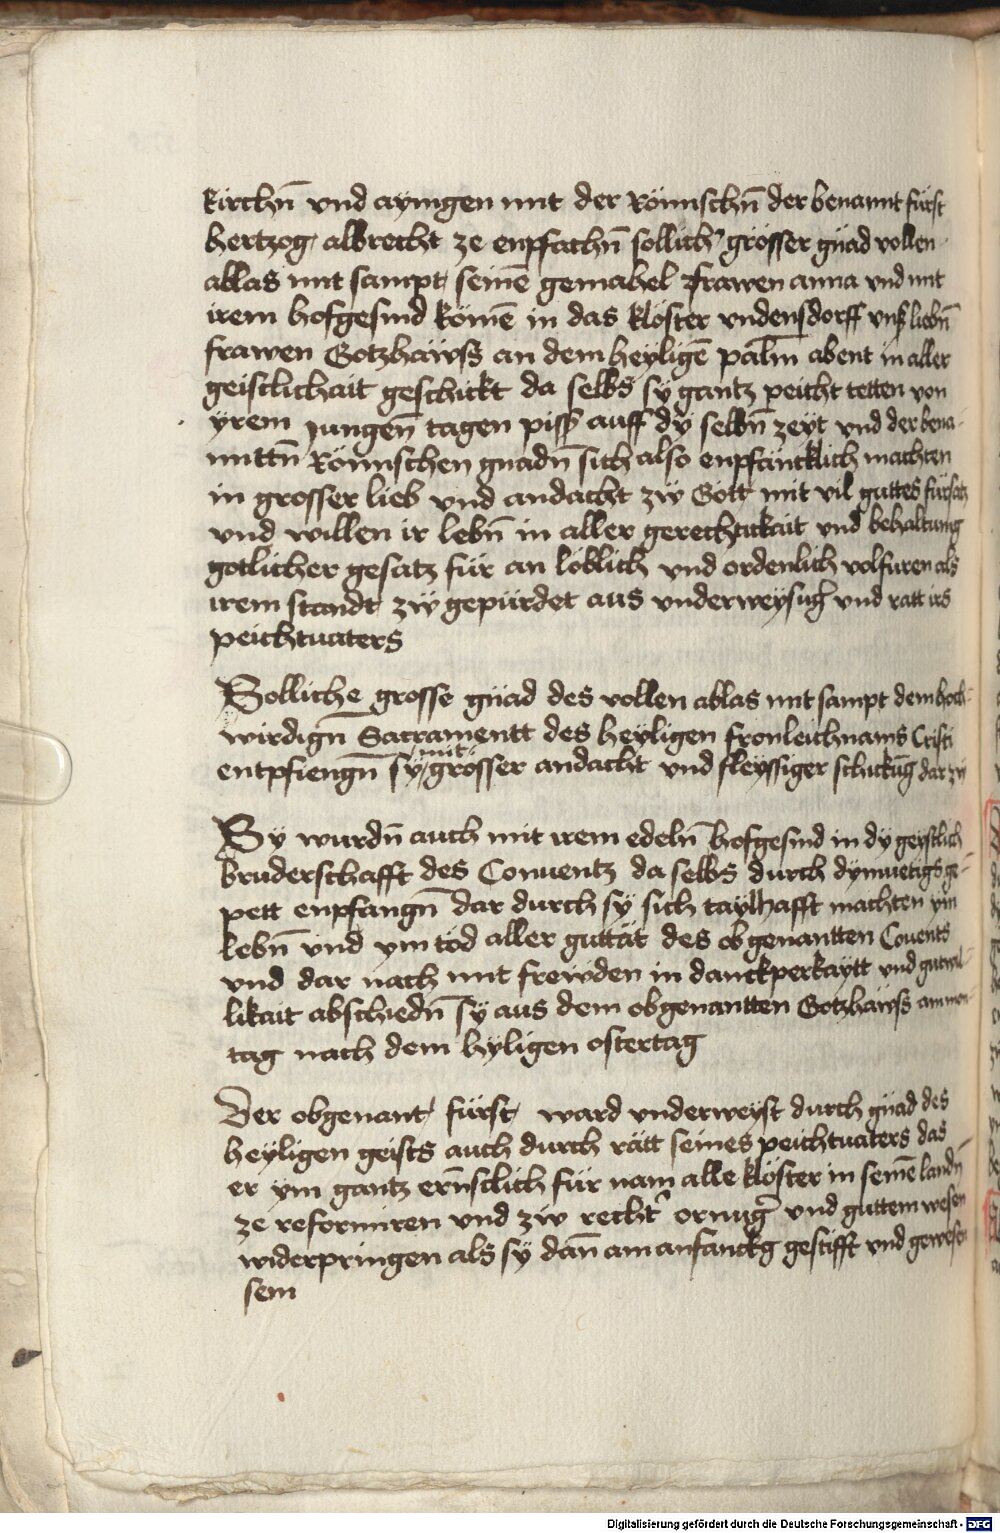 kirchn̄ vnd aynigen mit der Römischn̄ der benannt fürst
hertzog albrecht ze enpfachn̄ sollich' grosser gnad vollen
ablas mit sampt seinē gemahel frawen anna vnd mit
irem hofgesind kömē in das kloster vndensdorff vnß liebn̄
frawen Gotzhawß an dem heyligē palm abent in aller
geistlichait geschickt da selbs sÿ gantz peicht tetten von
yrem jungen̄ tagen piss auff dÿ selbn̄ zeyt vnd der bena-
nittn̄ Römischen gnadn̄ sich also enpfäncklich machten
in grosser lieb vnd andacht zw̄ Gott mit vil guttes fürsatz
vnd willen ir lebn̄ in aller gerechtikait vnd behaltung
gotlicher gesatz für an löblich vnd ordenlich volfuren als
irem standt zw̄ gepürdet aus vnderweysūg vnd ratt irs
peichtuaters
Solliche grosse gnad des vollen ablas mit sampt dem hoch-
wirdign̄ Sacramentt des heyligen fronleichnams Cristi
entpfiengn̄ sÿ mit grosser andacht vnd fleyssiger schickūg dar zw
Sÿ wurdn̄ auch mit irem edeln̄ hofgesind in dÿ geystlich
bruderschafft des Conuentz da selbs durch dymuetigs ge-
pett enpfangn̄ dar durch sÿ sich taylhafft machten ym
lebn̄ vnd ym tod aller guttät des obgenantten Couents
vnd dar nach mit frewden in danckperkaytt vnd gutwil-
likait abschiedn̄ sÿ aus dem obgenantten Gotzhawß am mon-
tag nach dem hyligen ostertag
Der obgenant fürst ward vnderweyst durch gnad des
heyligen geists auch durch rätt seines peichtuaters das
er ym gantz ern̄stlich für nam alle klöster in seinē landn̄
ze reformiren vnd zw recht' ornūg vnd guttem wesen
widerpringen als sÿ dan̄ am anfanckg gestifft vnd gewesen
sein
Digitalisierung gefördert durch die Deutsche Forschungsgemeinschaft - DFG